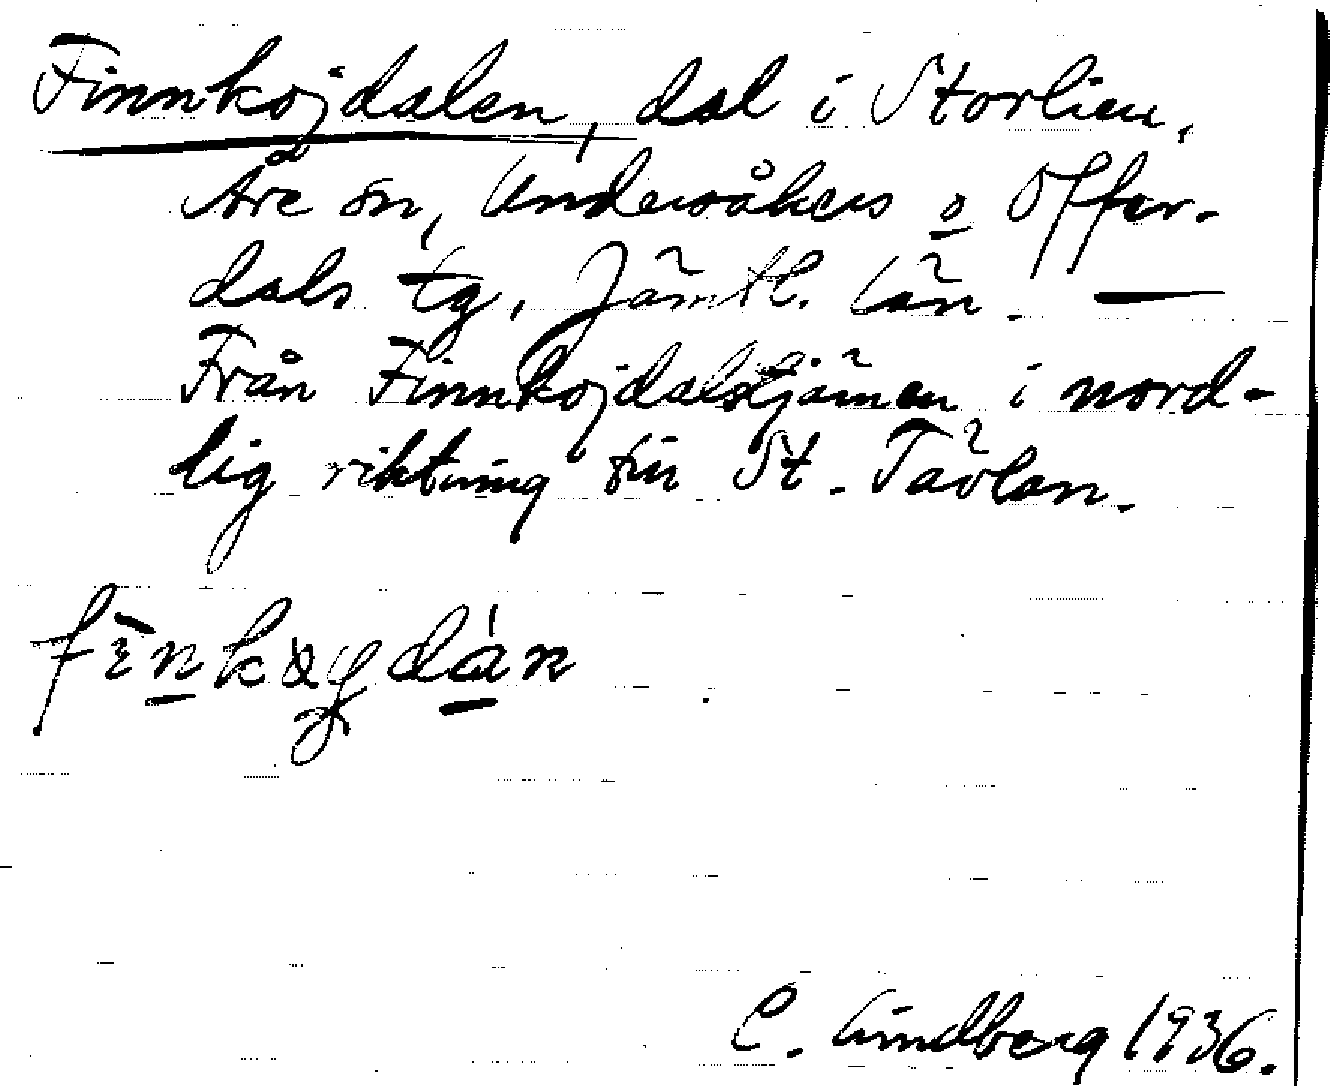 Finnkojdalen, dal i Storlien,
Åre sn, Undersåkers o Offer-
dals tg, Jämtl. län. —
Från Finnkojdalstjärnen i nord-
lig riktning till St. Tävlan.
C. Lindberg 1936.